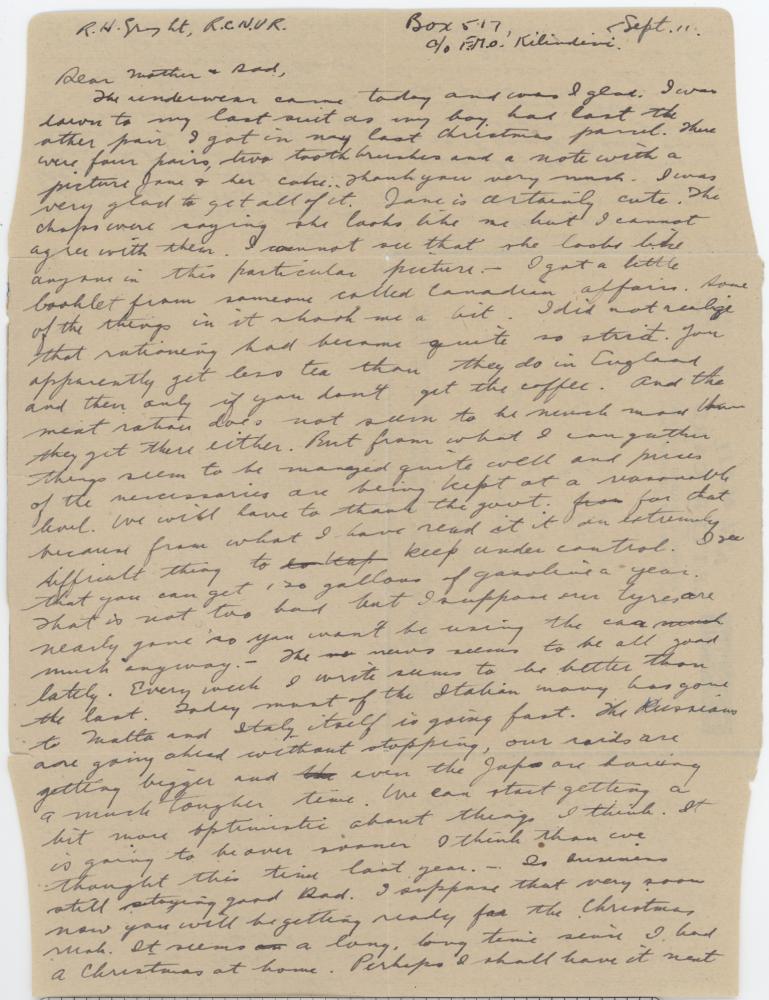 R.H. Gray Lt, R.C.N.V.R. Box 517, Sept. 11.
c/o F.M.O. Kilindini.
Dear Mother & Dad,
The underwear came today and was I glad. I was
down to my last suit as my boy had lost the
other pair I got in my last christmas parcel. There
were four pairs, two tooth brushes and a note with a
picture Jane & her cake. Thank you very much. I was
very glad to get all of it. Jane is certainly cute. The
chaps were saying she looks like me but I cannot
agree with them. I cannot see that she looks like
anyone in this particular picture. - I got a little
booklet from someone called Canadian affairs. Some
of the things in it shook me a bit. I did not realize
that rationing had become quite so strict. You
apparently get less tea than they do in England
and then only if you don't get the coffee. And the
meat ration does not seem to be much more than
they get there either. But from what I can gather
things seem to be managed quite well and prices
of the necessaries are being kept at a reasonable
level. We will have to thank the govt. for that
because from what I have read it it an extremely
difficult thing to keep under control. I see
that you can get 120 gallons of gasoline a year.
That is not too bad but I suppose our tyres are
nearly gone so you won't be using the car much
much anyway. - The news seems to be all good
lately. Every week I write seems to be better than
the last. Today most of the Italian navy has gone
to Malta and Italy itself is going fast. The Russians
are going ahead without stopping, our raids are
getting bigger and even the Japs are having
a much tougher time. We can start getting a
bit more optimistic about things I think. It
is going to be over sooner I think than we
thought this time last year. - Is business
still staying good Dad. I suppose that very soon
now you will be getting ready for the Christmas
rush. It seems a long, long time since I had
a Christmas at home. Perhaps I shall have it next